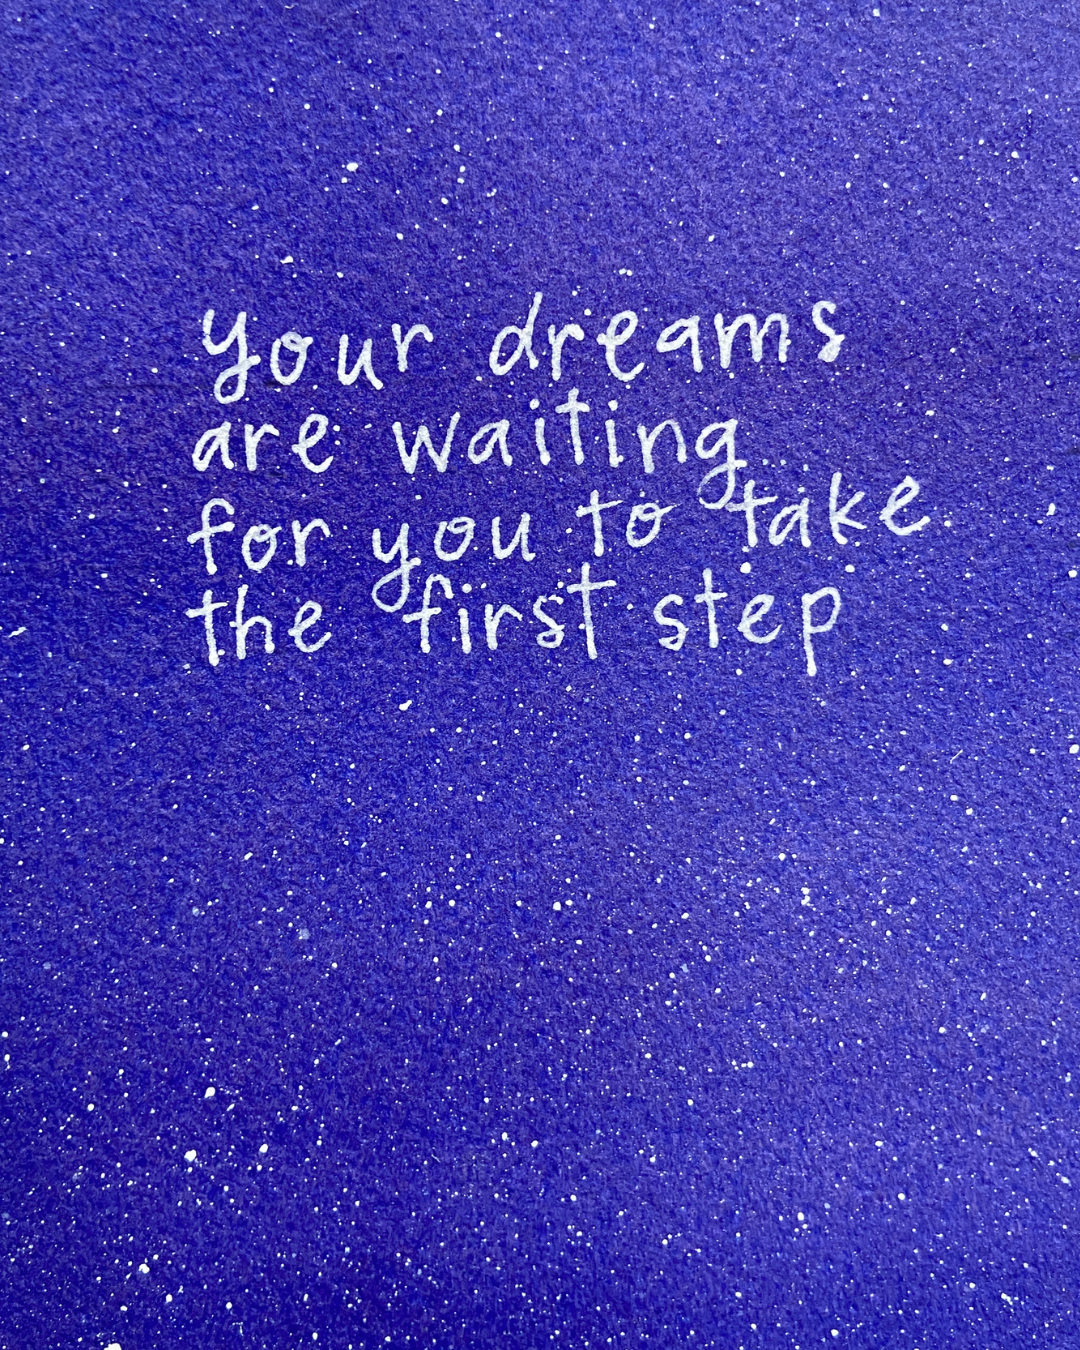 your dreams
are waiting
for you to take
the first step